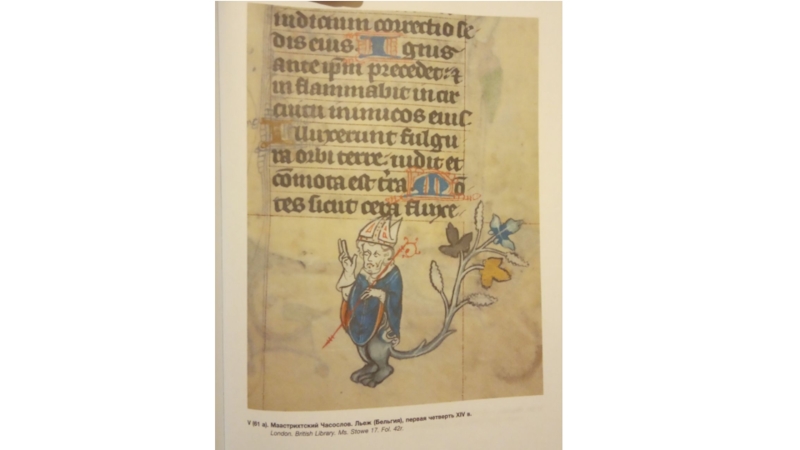 iudicium correctio se
dis eius. Ignis
ante ipm precedet: ⁊
in flammabit in cir
cuitu inimicos eius
Illuxerunt fulgu
ra orbi terre. uidit et
cōmota est tra Mō
tes sicut cera fluxe
V (81 a). Маастрихтский Часослов. Льеж (Бельгия), первая четверть XIV в.
London, British Library. Ms. Stowe 17. Fol. 42r.